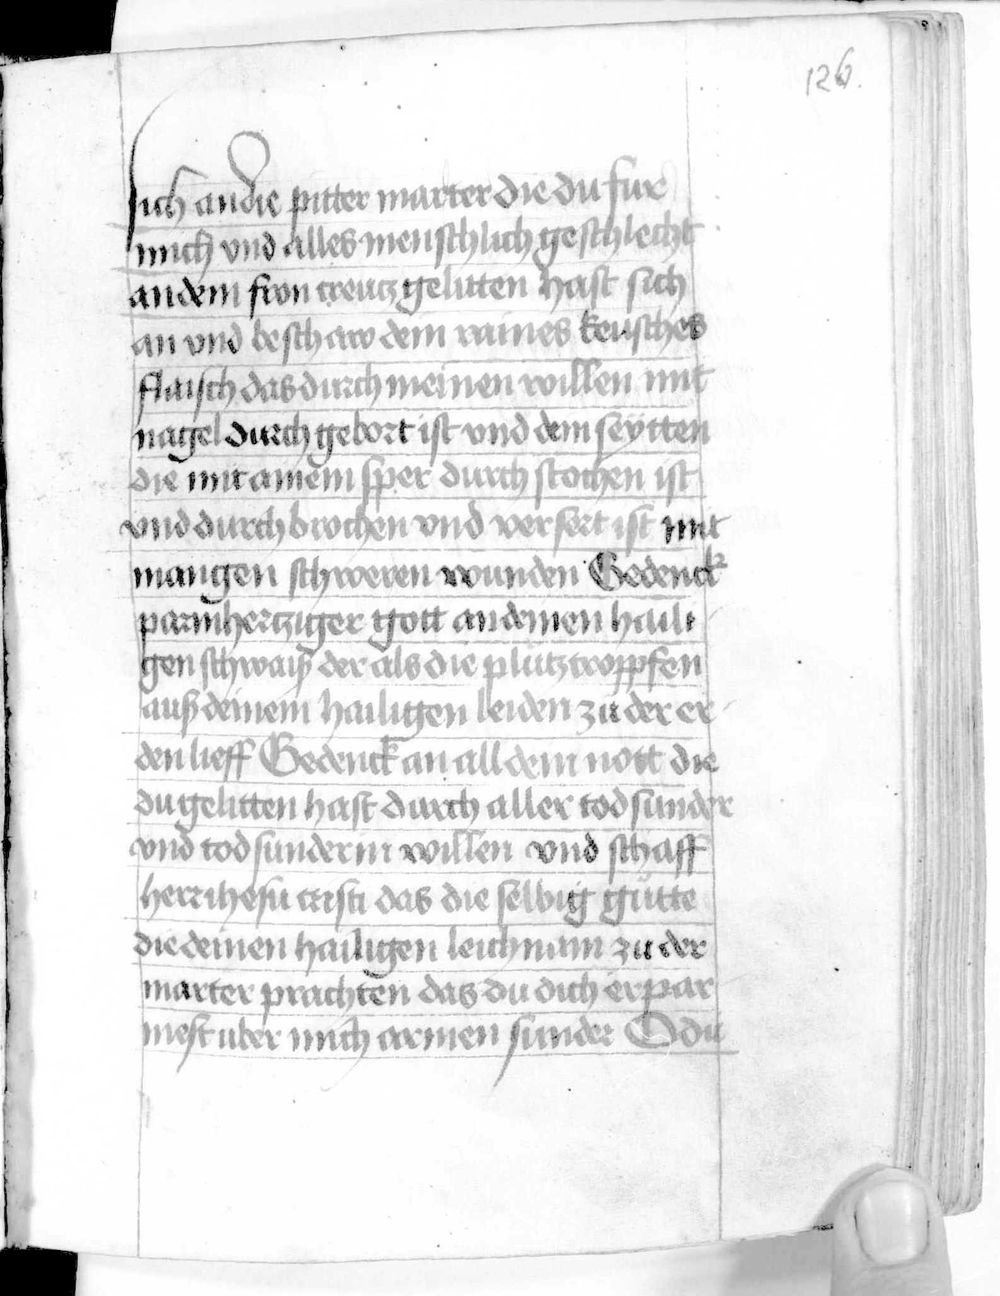 126.
sich an die pitter marter die du fur
mich vnd alles menschlich geschlecht
an dem fron creutz gelitten hast sich
an vnd beschaw dein raines keusches
flaisch das durch meinen willen mit
nagel durch gebort ist vnd dein seytten
die mit ainem sper durch stochen ist
vnd durch brochen vnd versert ist mit
mangen schweren wunden Gedenck
parmhertziger gott an deinen haili
gen schwaiß der als die plutztropffen
auß deinem hailigen leiden zu der er
den lieff Gedenck an all dein nott die
du gelitten hast durch aller tod sunder
vnd tod sunderin willen vnd schaff
herr ihesu cristi das die selbig gütte
die deinen hailigen leichnam zu der
marter prachten das du dich erpar
mest uber mich armen sunder O du